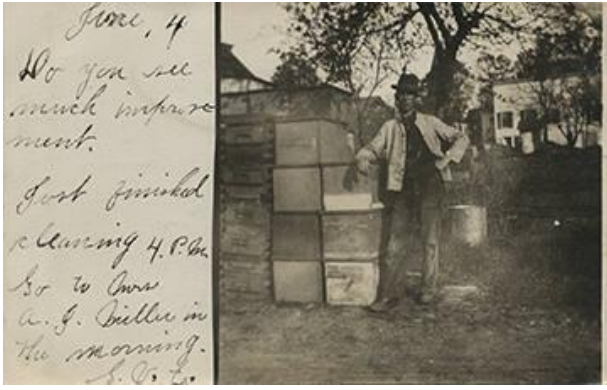 June, 4
Do you see
much improve
ment.
Just finished
cleaning 4 P.M.
Go to
in
the morning.